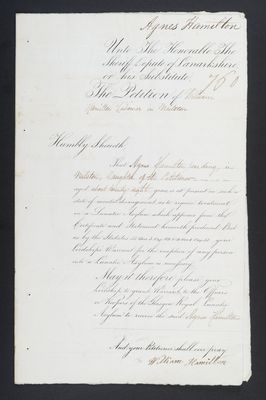 Agnes Hamilton
Unto The Honorable The
Sheriff Depute of Lanarkshire,
or his Substitute,
760
The Petition of William
Hamilton Labourer in
Humbly Sheweth
That Agnes Hamilton residing in
daughter of the Petitioner
aged about twenty eight years is at present in such a
state of mental derangement as to require treatment
in a Lunatic Asylum which appears from the
Certificate and Statement herewith produced But
as by the Statutes your
Lordships Warrant for the reception of any person
into a Lunatic Asylum is necessary
May it therefore please your
Lordship to grant Warrant to the Officers
or Keepers of the Glasgow Royal Lunatic
Asylum to receive the said Agnes Hamilton
And your Petitioner shall ever pray
William Hamilton